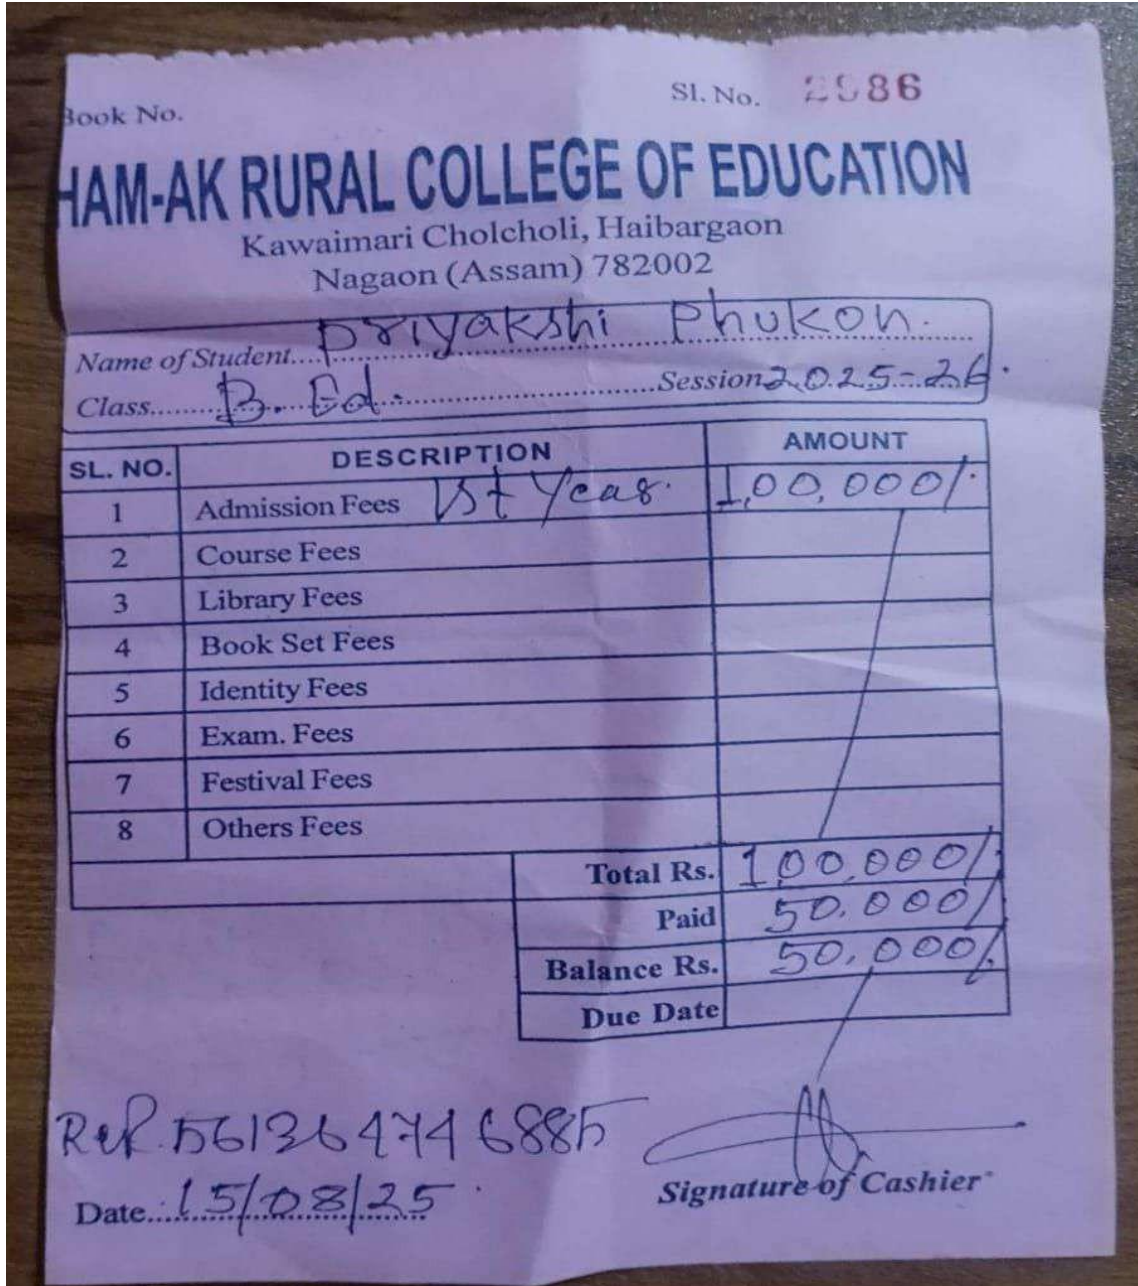 Book No.
Sl. No. 2986
HAM-AK RURAL COLLEGE OF EDUCATION
Kawaimari Cholcholi, Haibargaon
Nagaon (Assam) 782002
Name of Student.... Priyakshi Phukon.
Class.......B. Ed. ..........Session 2025-26.
SL. NO. DESCRIPTION AMOUNT
1 Admission Fees 1st Year. 1,00,000/.
2 Course Fees
3 Library Fees
4 Book Set Fees
5 Identity Fees
6 Exam. Fees
7 Festival Fees
8 Others Fees
Total Rs. 1,00,000/.
Paid 50,000/.
Balance Rs. 50,000/.
Due Date
Ref. 561364746885
Date...15/08/25.
Signature of Cashier